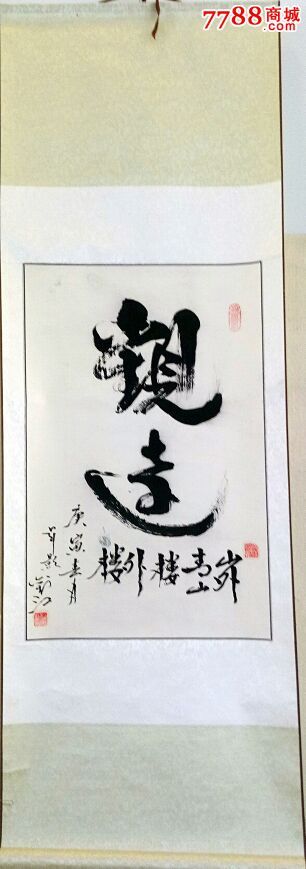 7788商城
觀遠
山外青山楼外楼
庚寅春月